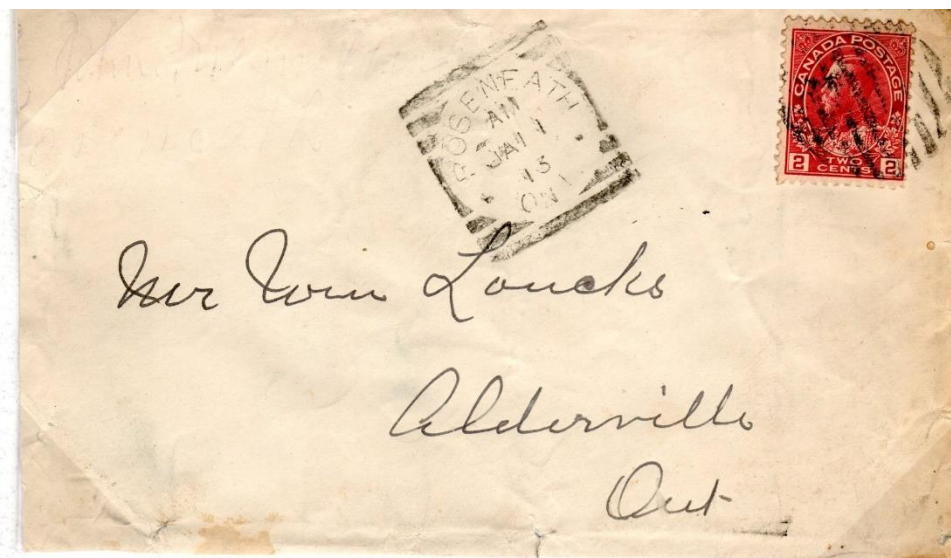 ROSENEATH
AM
JA 11
13
ONT
CANADA POSTAGE
2 TWO CENTS 2
Mr Wm Loucks
Alderville
Ont